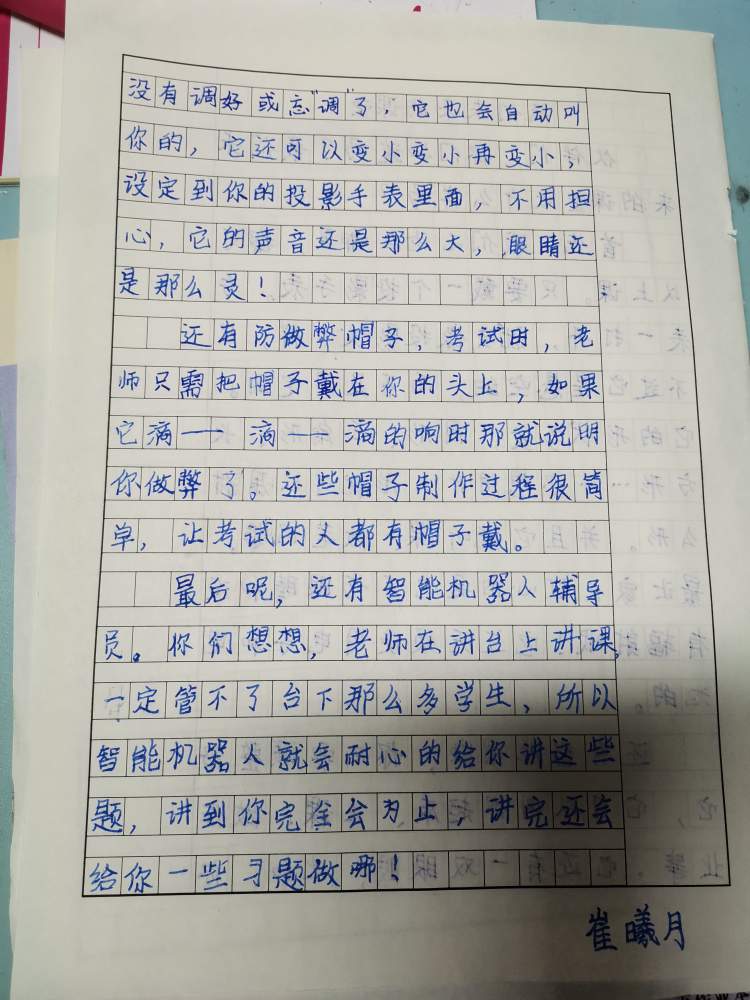 没有调好或忘"调"了，它也会自动叫
你的，它还可以变小变小再变小，
设定到你的投影手表里面，不用担
心，它的声音还是那么大，眼睛还
是那么灵！
还有防做弊帽子，考试时，老
师只需把帽子戴在你的头上，如果
它滴——滴——滴的响时那就说明
你做弊了。还些帽子制作过程很简
单，让考试的人都有帽子戴。
最后呢，还有智能机器人辅导
员。你们想想，老师在讲台上讲课，
一定管不了台下那么多学生，所以
智能机器人就会耐心的给你讲这些
题，讲到你完全会为止，讲完还会
给你一些习题做哪！
崔曦月